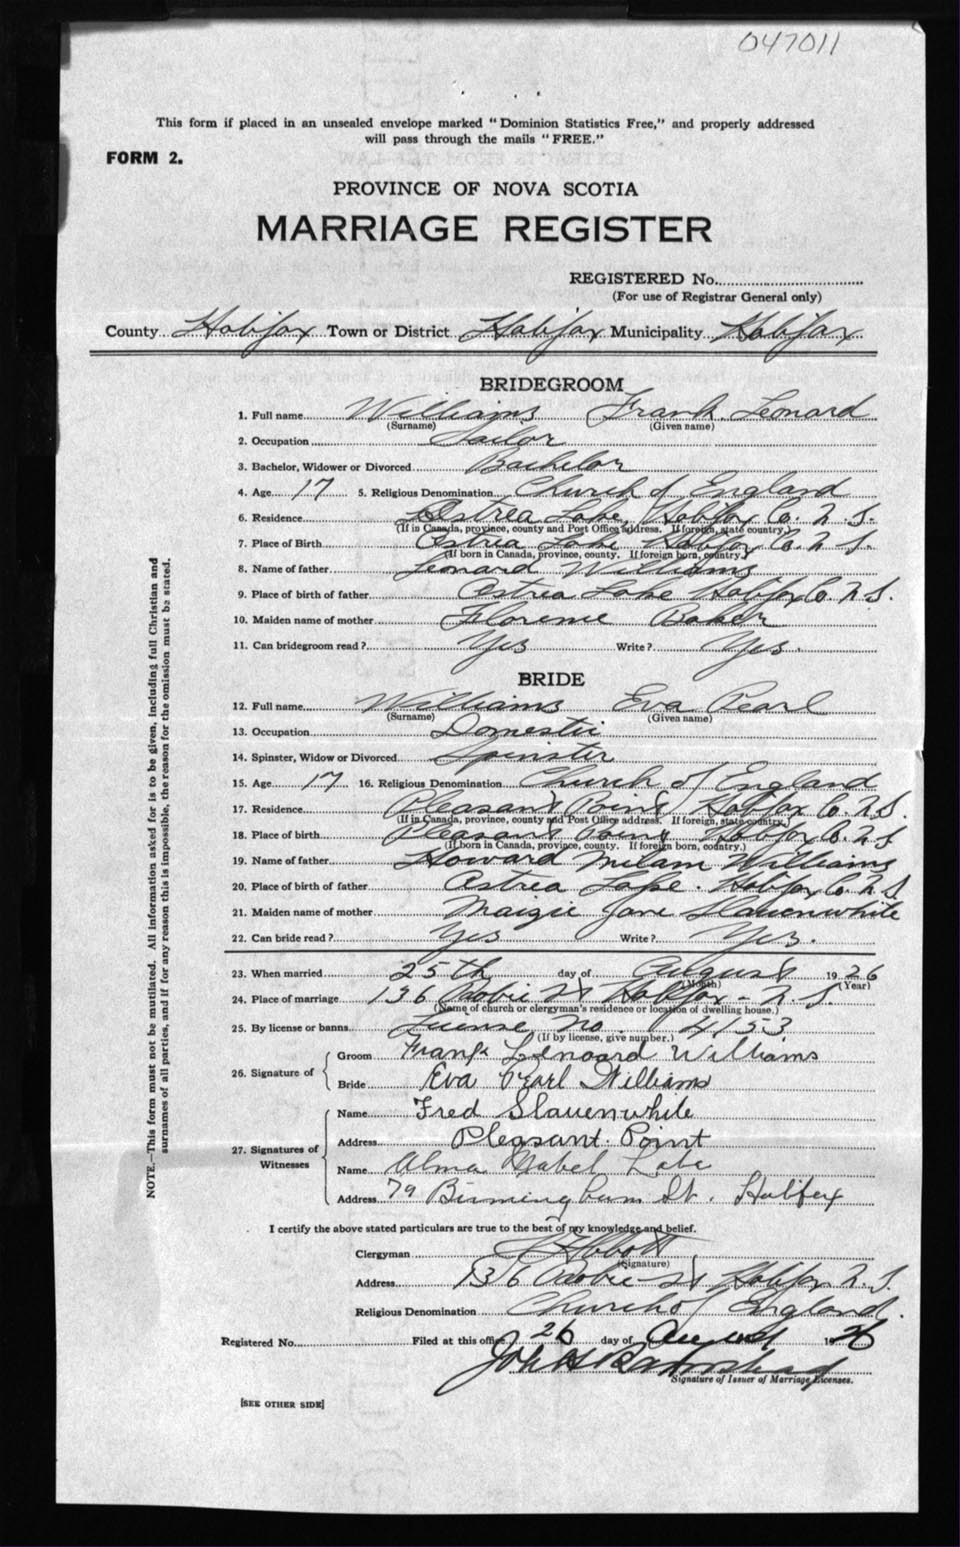 047011
This form if placed in an unsealed envelope marked "Dominion Statistics Free," and properly addressed
will pass through the mails "FREE."
FORM 2.
PROVINCE OF NOVA SCOTIA
MARRIAGE REGISTER
REGISTERED No.
(For use of Registrar General only)
County Halifax Town or District Halifax Municipality Halifax
BRIDEGROOM
1. Full name Williams Frank Leonard
(Surname) (Given name)
2. Occupation Sailor
3. Bachelor, Widower or Divorced Bachelor
4. Age 17 5. Religious Denomination Church of England
6. Residence Ostrea Lake, Halifax Co. N.S.
(If in Canada, province, county and Post Office address. If foreign, state country.)
7. Place of Birth Ostrea Lake Halifax Co. N.S.
(If born in Canada, province, county. If foreign born, country.)
8. Name of father Leonard Williams
9. Place of birth of father Ostrea Lake Halifax Co. N.S.
10. Maiden name of mother Florence Baker
11. Can bridegroom read? Yes Write? Yes.
BRIDE
12. Full name Williams Eva Pearl
(Surname) (Given name)
13. Occupation Domestic
14. Spinster, Widow or Divorced Spinster
15. Age 17 16. Religious Denomination Church of England
17. Residence Pleasant Point Halifax Co. N.S.
(If in Canada, province, county and Post Office address. If foreign, state country.)
18. Place of birth Pleasant Point Halifax Co. N.S
(If born in Canada, province, county. If foreign born, country.)
19. Name of father Howard Williams
20. Place of birth of father Ostrea Lake. Halifax Co. N.S.
21. Maiden name of mother Maizie Jane Slauenwhite
22. Can bride read? Yes Write? Yes.
23. When married 25th day of August 1926
(Month) (Year)
24. Place of marriage 136 Robie St Halifax - N.S.
(Name of church or clergyman's residence or location of dwelling house.)
25. By license or banns License No. 4153
(If by license, give number.)
26. Signature of Groom Frank Lenoard Williams
Bride Eva Pearl Williams
27. Signatures of Witnesses Name Fred Slauenwhite
Address Pleasant Point
Name Alma Mabel
Address 79 Birmingham St. Halifax
I certify the above stated particulars are true to the best of my knowledge and belief.
Clergyman Abbott
(Signature)
Address 136 Robie St Halifax N.S.
Religious Denomination Church of England.
Registered No. Filed at this office 26 day of August 1926
John
Signature of Issuer of Marriage Licenses.
[SEE OTHER SIDE]
NOTE.—This form must not be mutilated. All information asked for is to be given, including full Christian and
surnames of all parties, and if for any reason this is impossible, the reason for the omission must be stated.